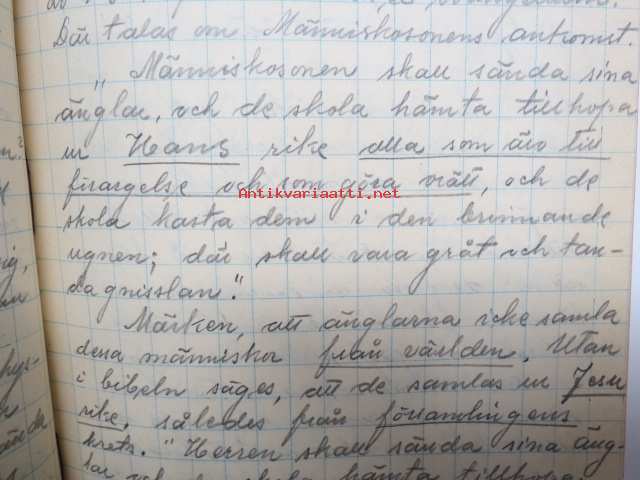 Där talas om Människosonens ankomst.
"Människosonen skall sända sina
änglar, och de skola hämta tillhopa
ur Hans rike alla som äro till
förargelse och som göra orätt, och de
Antikvariaatti.net
skola kasta dem i den brinnande
ugnen; där skall vara gråt och tan-
dagnisslan."
Märken, att änglarna icke samla
dessa människor från världen. Utan
i bibeln säges, att de samlas ur Jesu
rike, således från församlingens
krets. "Herren skall sända sina äng-
lar och de skola hämta tillhopa